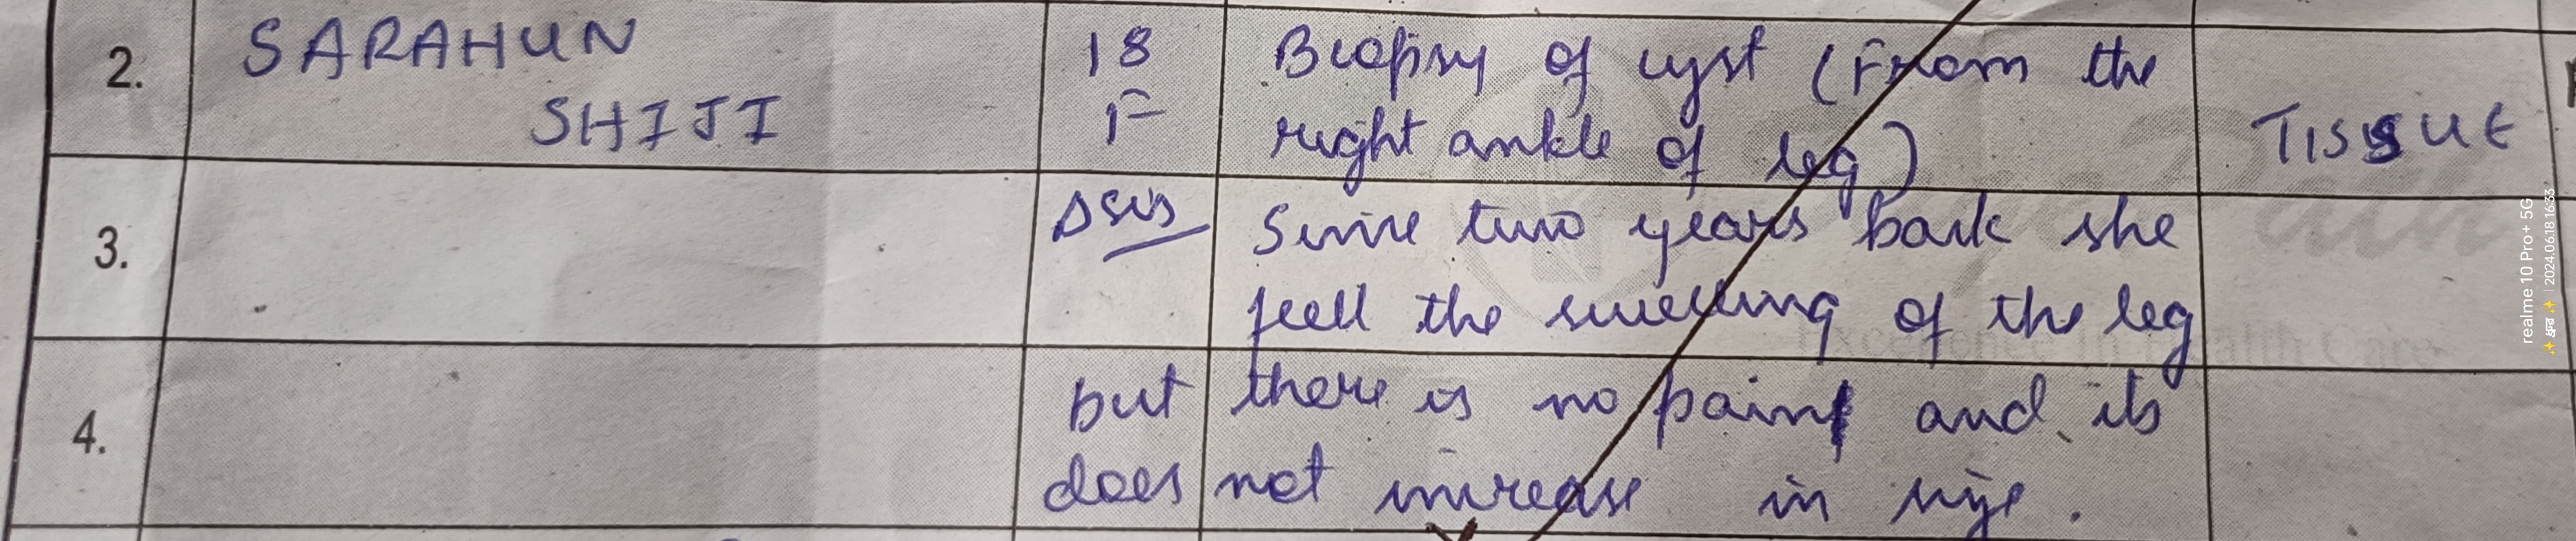 2. SARAHUN 18 Biopsy of cyst (From the
SHIJI F right ankle of leg) TISSUE
3. Since two years back she
feell the swelling of the leg
4. but there is no pain and its
does not increase in size.
Excellence in Health Care
realme 10 Pro+ 5G
2024.06.18 16:33